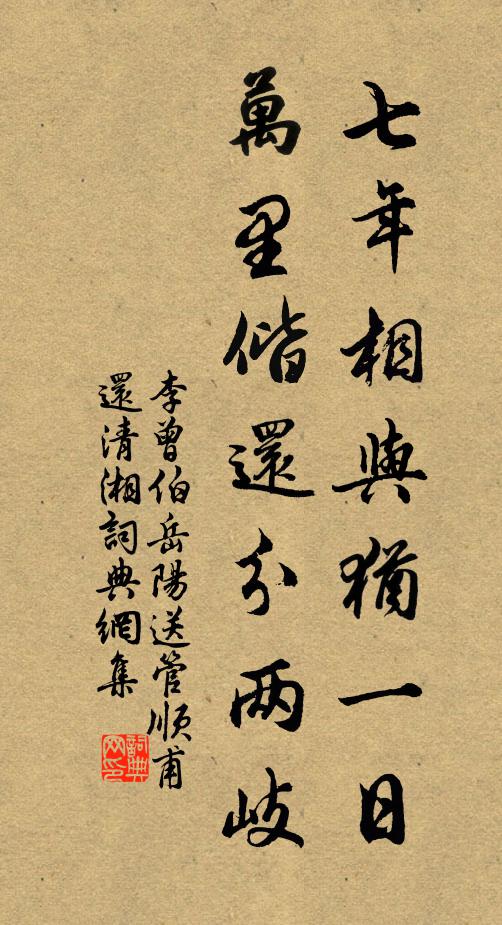 七年相與猶一日
萬里偕還分兩岐
李曾伯岳陽送管順甫
還清湘詞典網集
詞典
网印